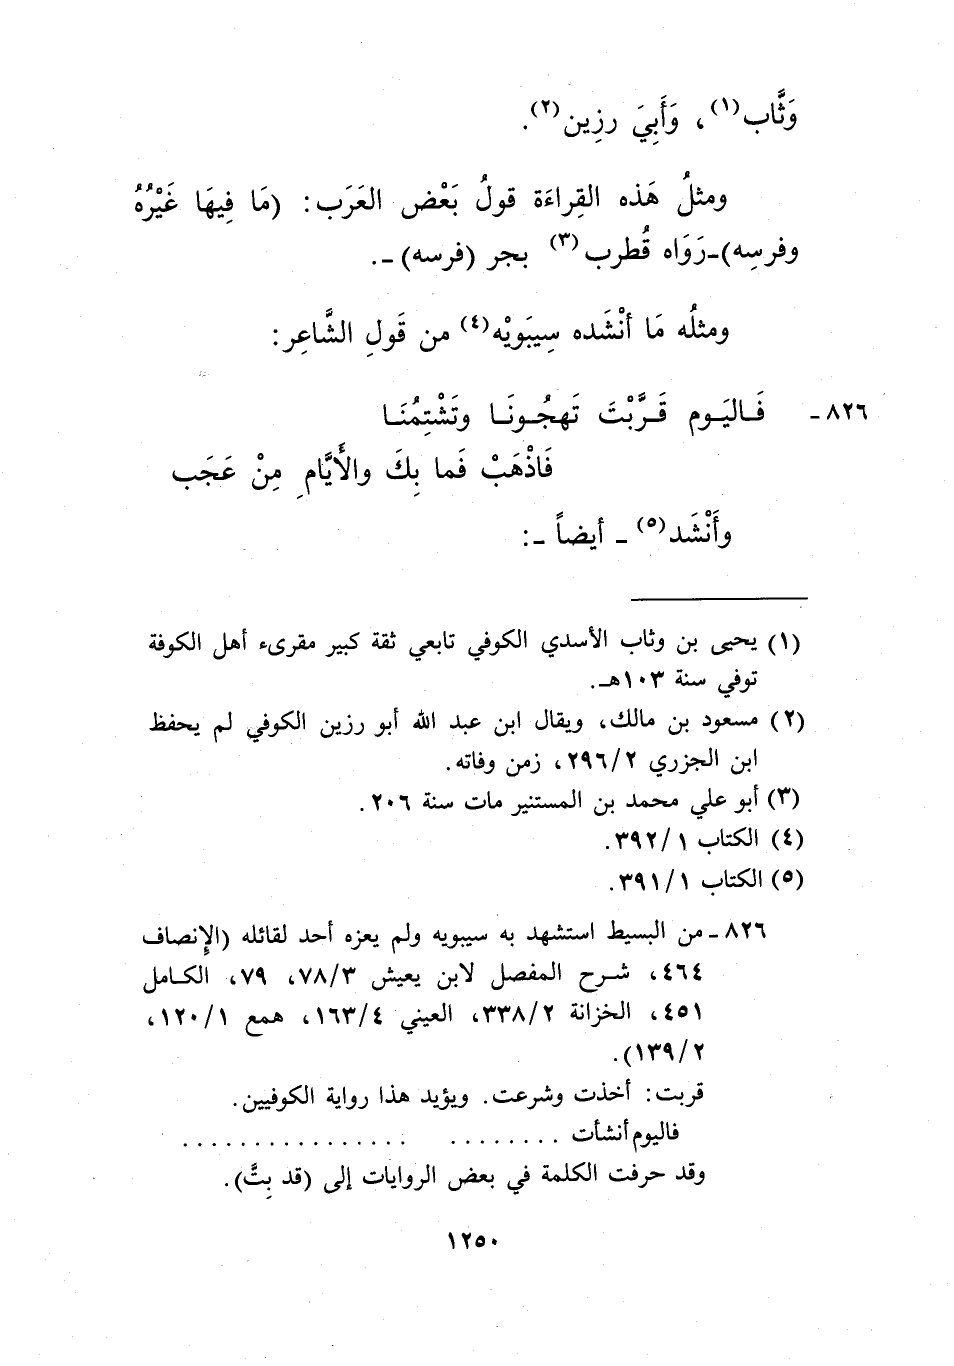 وَثَّاب(١)، وَأَبِيَ رزِين(٢).
ومثلُ هَذه القِراءَة قولُ بَعْض العَرَب: (مَا فِيهَا غَيْرُهُ
وفرسِه)-رَوَاه قُطرب(٣) بجر (فرسه) -.
ومثلُه مَا أنْشَده سِيبَويْه(٤) من قَولِ الشَّاعِر:
٨٢٦- فَاليَوم قَرَّبْتَ تَهجُونَا وتَشْتِمُنَا
فَاذْهَبْ فَما بِكَ والأَيَّامِ مِنْ عَجَب
وأَنْشَد(٥) - أيضاً -:
(١) يحيى بن وثاب الأسدي الكوفي تابعي ثقة كبير مقرىء أهل الكوفة
توفي سنة ١٠٣هـ.
(٢) مسعود بن مالك، ويقال ابن عبد الله أبو رزين الكوفي لم يحفظ
ابن الجزري ٢٩٦/٢، زمن وفاته.
(٣) أبو علي محمد بن المستنير مات سنة ٢٠٦.
(٤) الكتاب ٣٩٢/١.
(٥) الكتاب ٣٩١/١.
٨٢٦- من البسيط استشهد به سيبويه ولم يعزه أحد لقائله (الإِنصاف
٤٦٤، شرح المفصل لابن يعيش ٧٨/٣، ٧٩، الكامل
٤٥١، الخزانة ٣٣٨/٢، العيني ١٦٣/٤، همع ١٢٠/١،
١٣٩/٢).
قربت: أخذت وشرعت. ويؤيد هذا رواية الكوفيين.
فاليوم أنشأت ........ ................
وقد حرفت الكلمة في بعض الروايات إلى (قد بِتَّ).
١٢٥٠